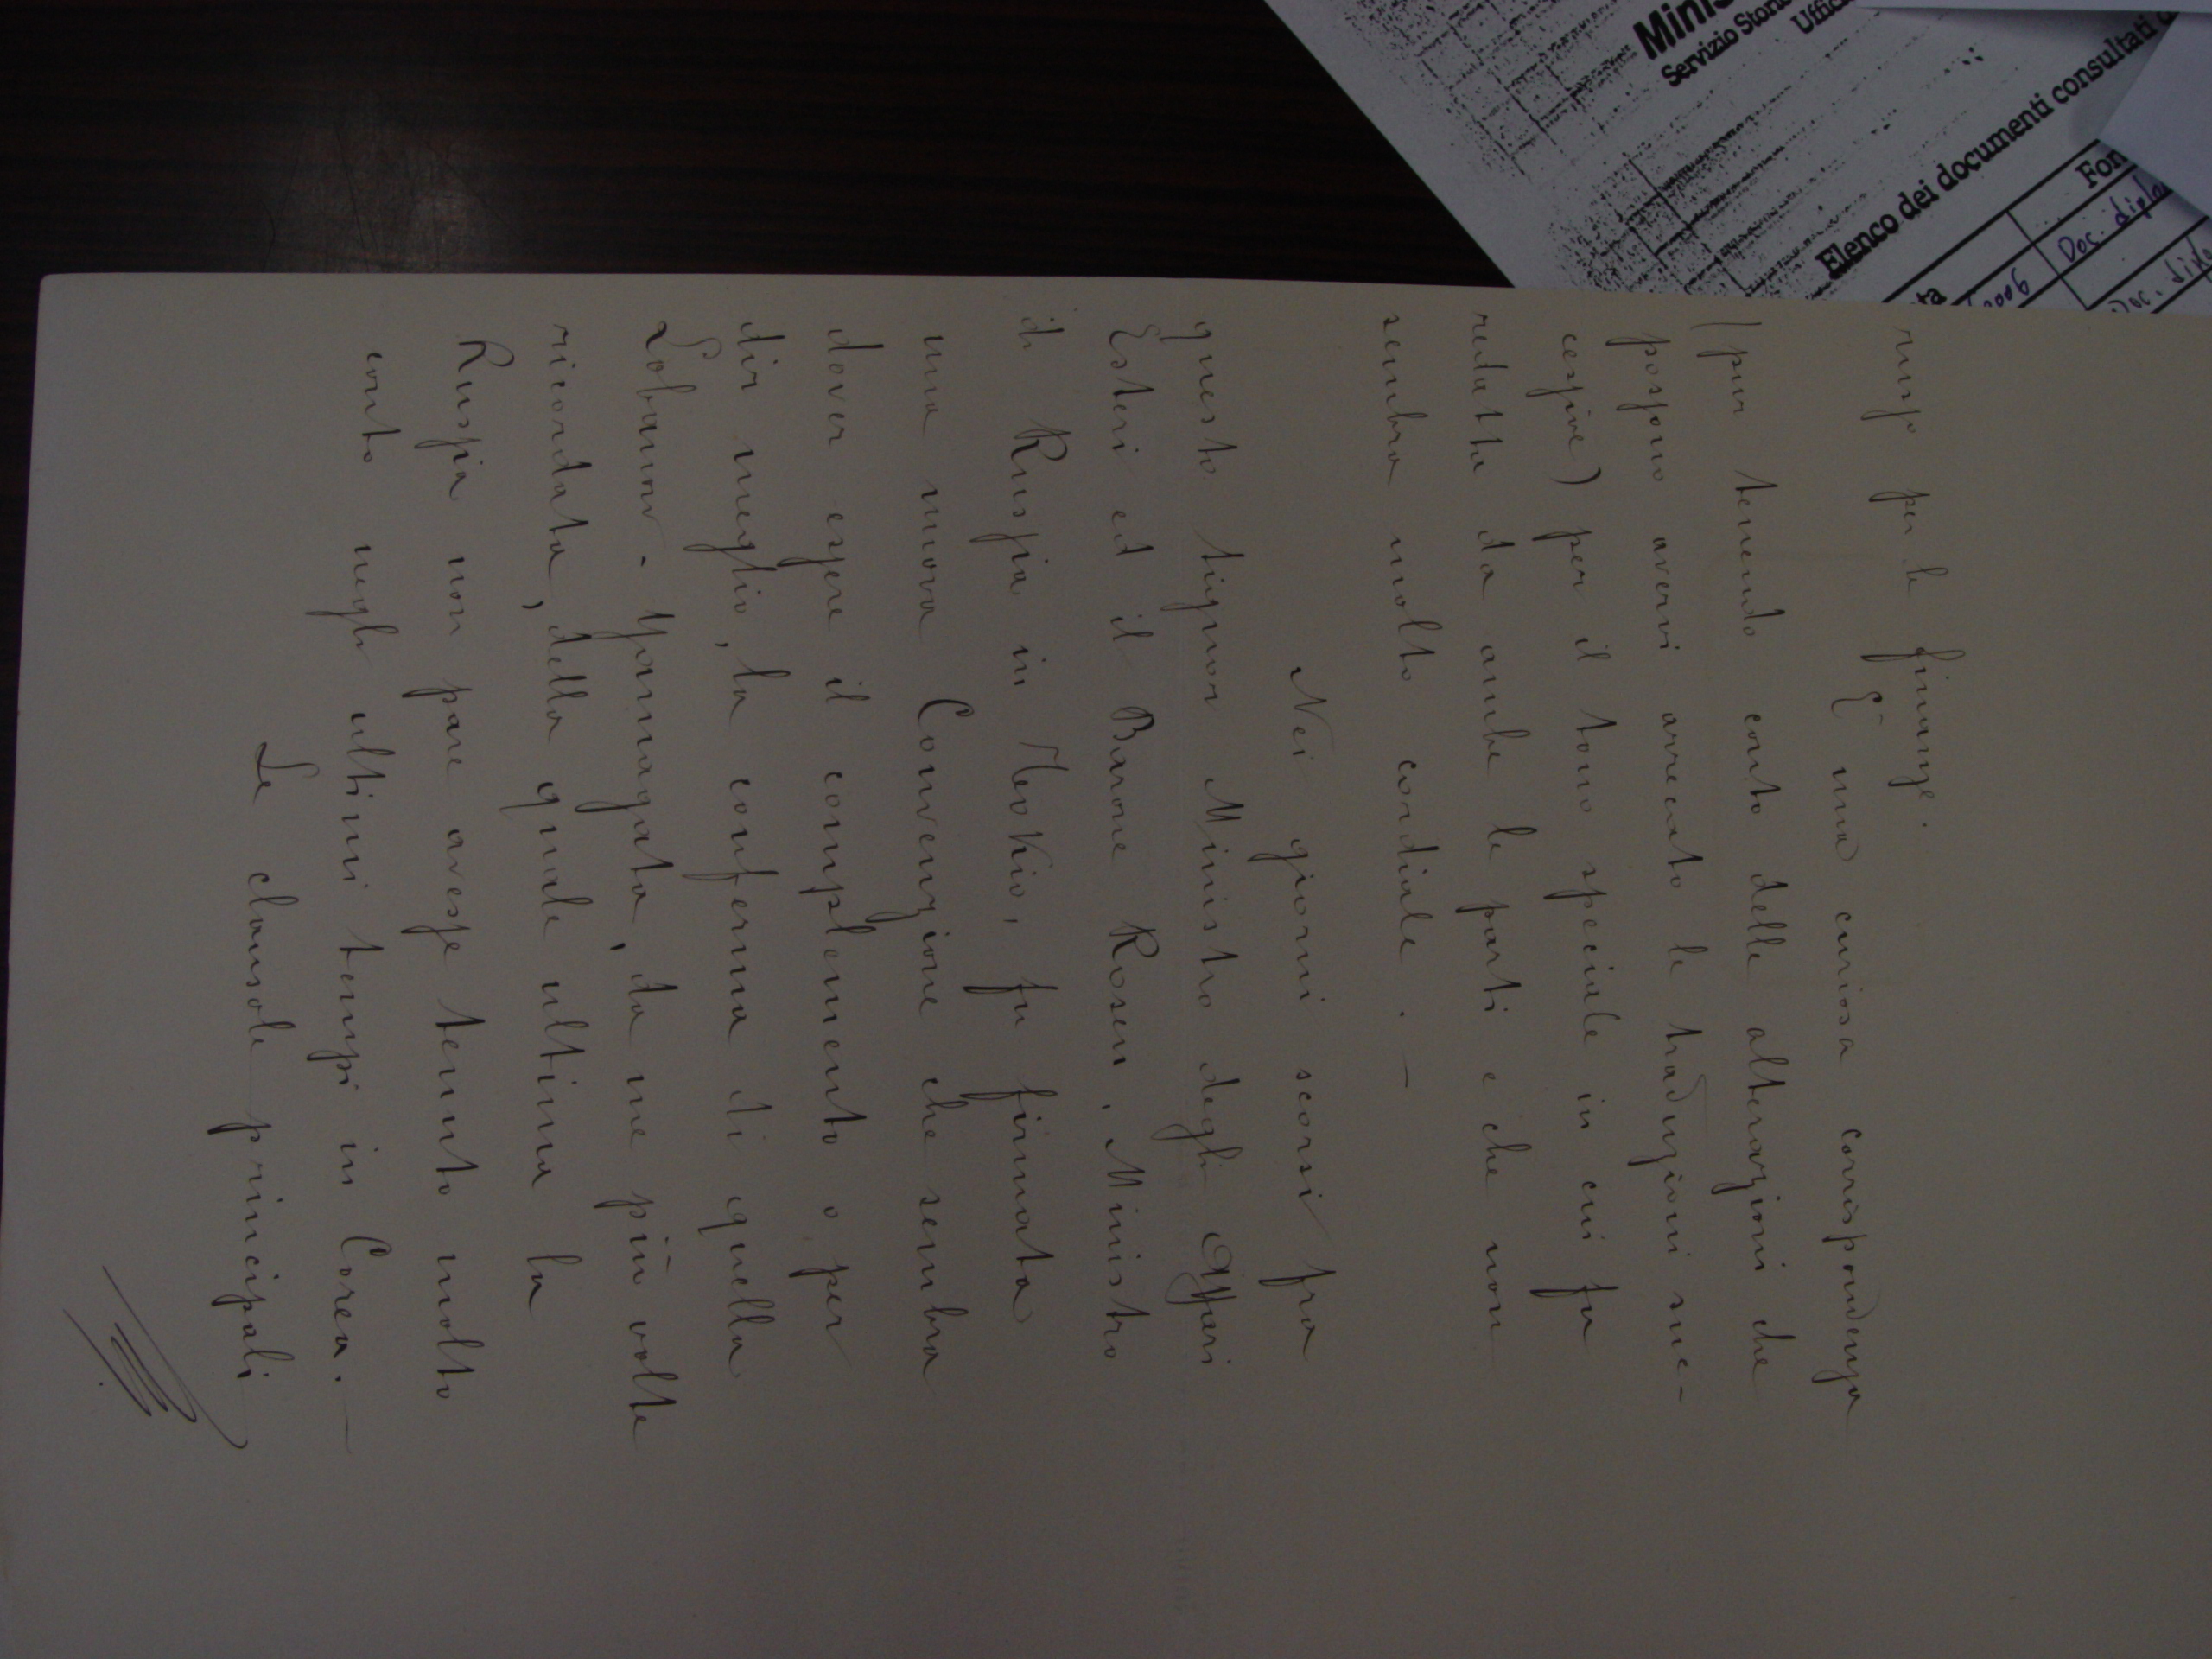 russo per le finanze.
È una curiosa corrispondenza
(pur tenendo conto delle alterazioni che
possono avervi arrecato le traduzioni suc-
cessive) per il tono speciale in cui fu
redatta da ambe le parti e che non
sembra molto cordiale. —
Nei giorni scorsi fra
questo signor Ministro degli Affari
Esteri ed il Barone Rosen, Ministro
di Russia in Tookio, fu firmata
una nuova Convenzione che sembra
dover essere il complemento o per
dir meglio, la conferma di quella
Lobanow. Yamagata, da me più volte
ricordata, della quale ultima la
Russia non pare avesse tenuto molto
conto negli ultimi tempi in Corea. —
Le clausole principali
Servizio Stori
Uffic
Elenco dei documenti consultati
Fon
Doc. diplo
2006
Doc. diplo